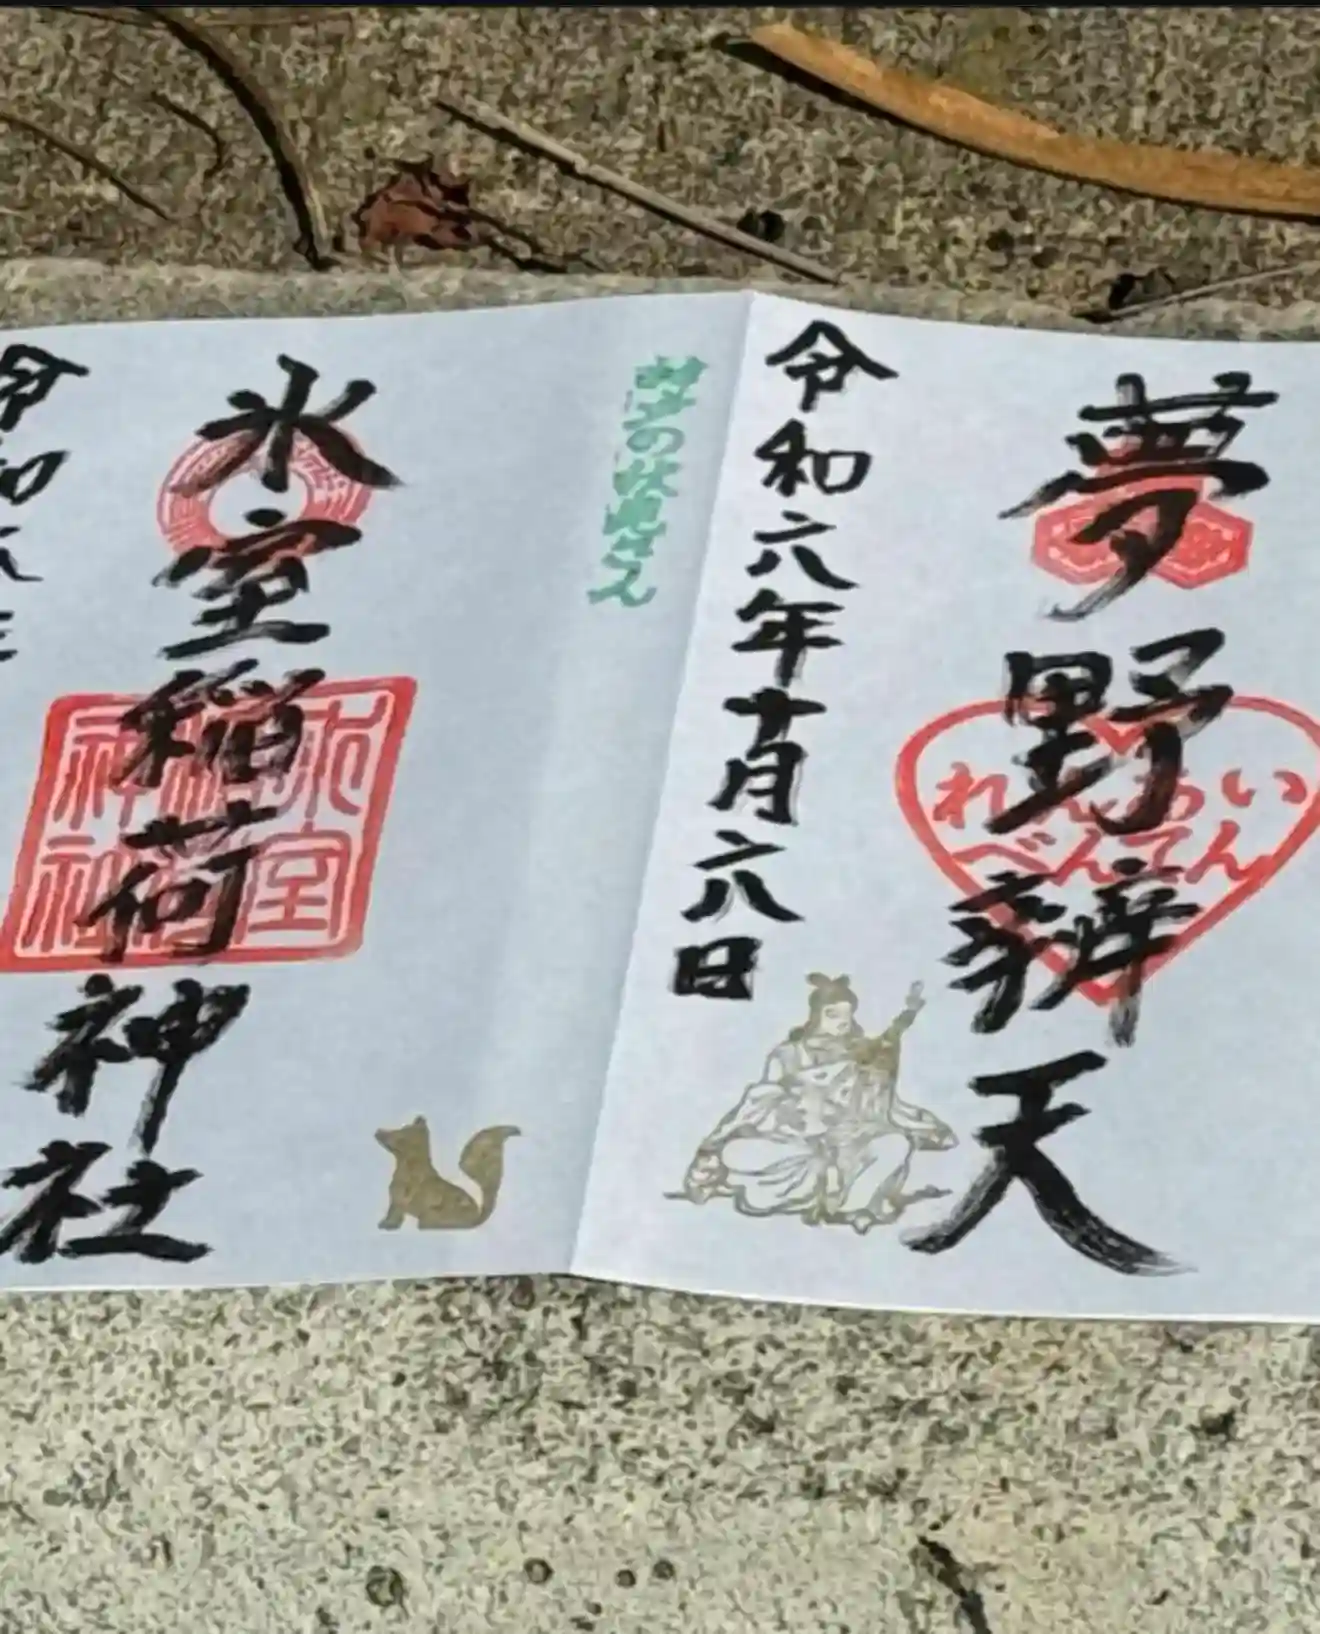 夢野辨天
れんあい
べんてん
令和六年十月六日
神戸の伏見さん
氷室稲荷神社
氷室
神社
令和六年